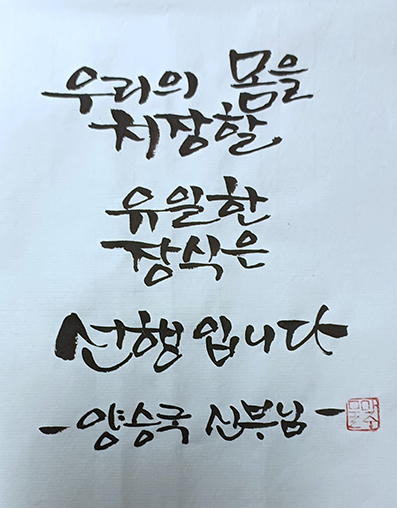 우리의 몸을
치장할
유일한
장식은
선행입니다
-양승국 신부님-